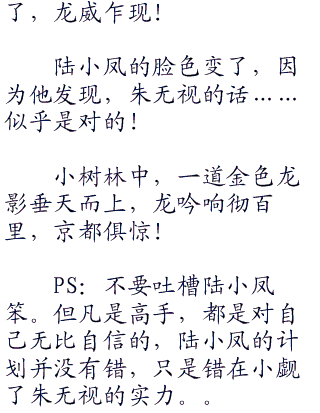 了，龙威乍现！
陆小凤的脸色变了，因
为他发现，朱无视的话……
似乎是对的！
小树林中，一道金色龙
影垂天而上，龙吟响彻百
里，京都俱惊！
PS：不要吐槽陆小凤
笨。但凡是高手，都是对自
己无比自信的，陆小凤的计
划并没有错，只是错在小觑
了朱无视的实力。。